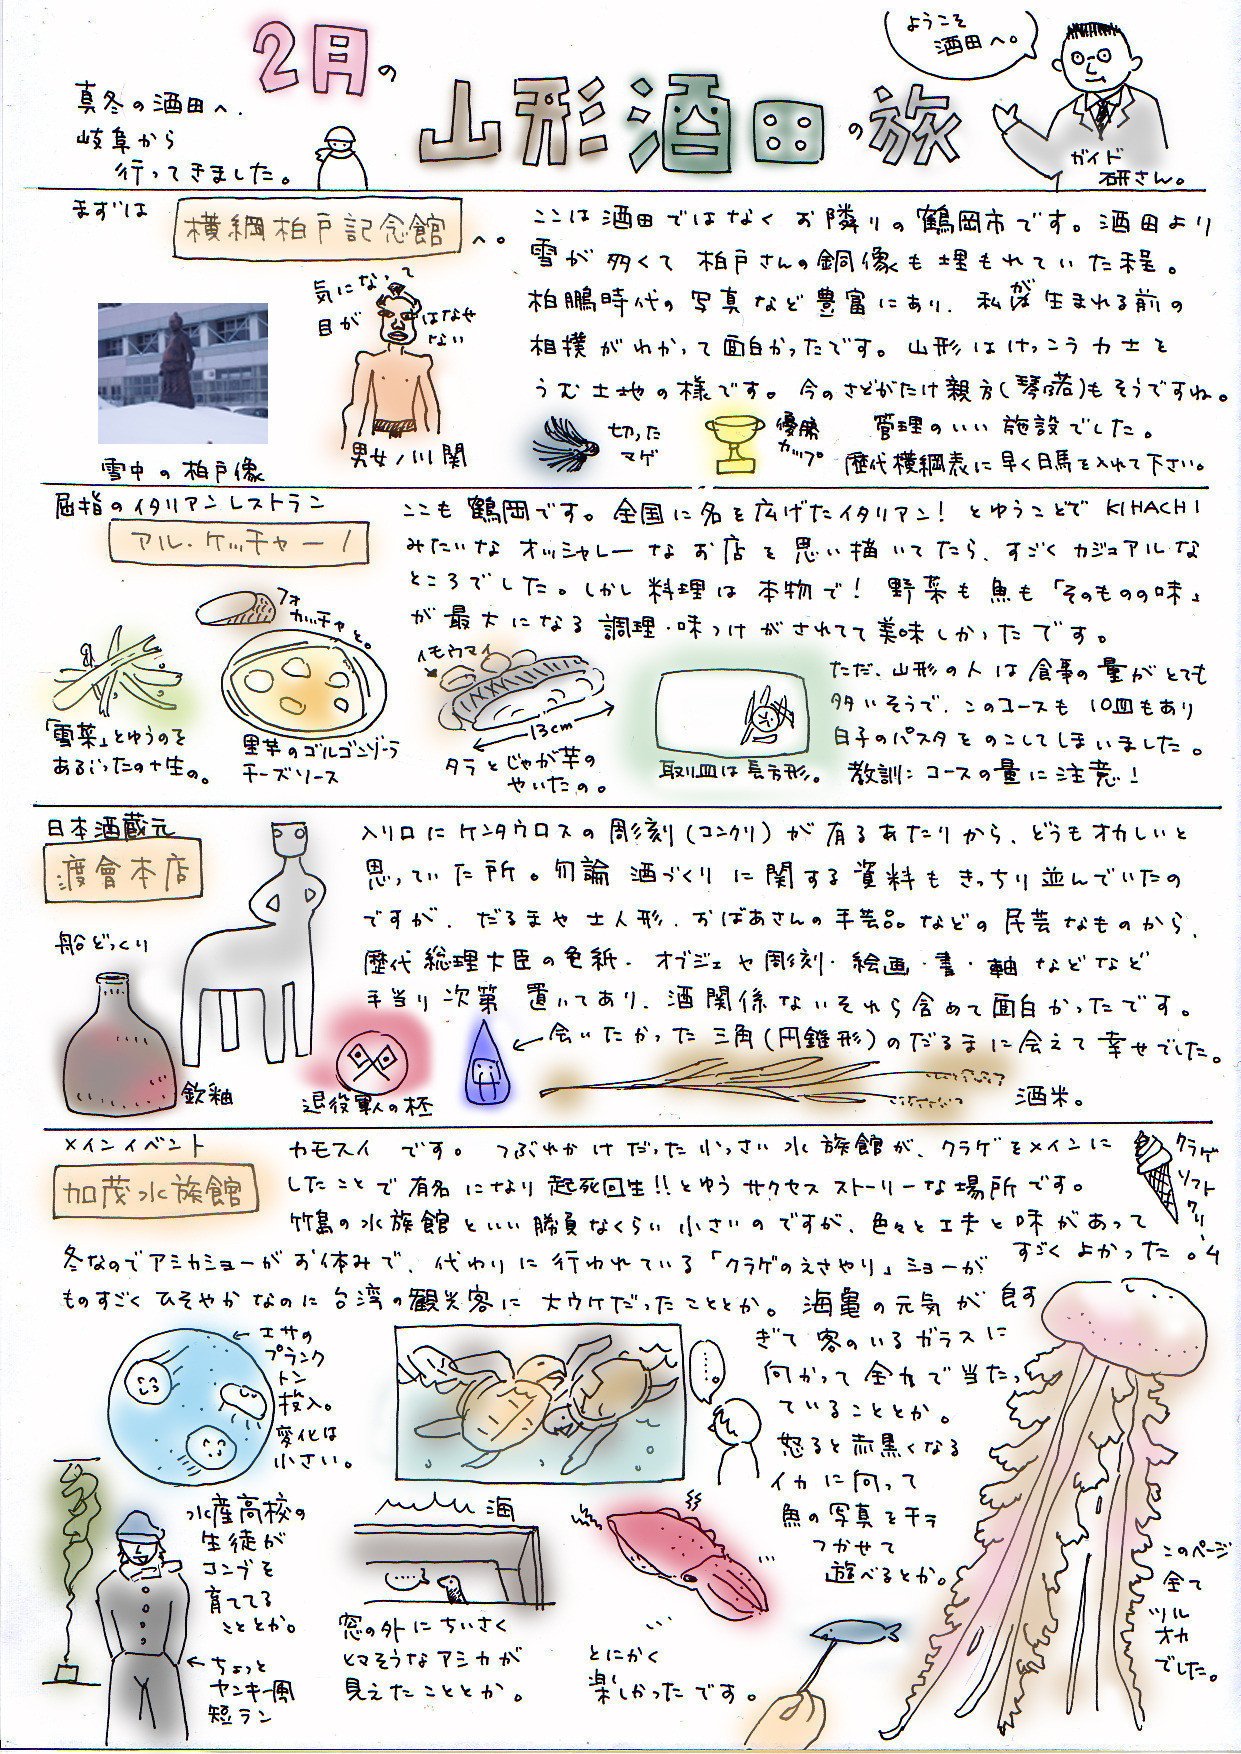 2月の
山形酒田の旅
ようこそ
酒田へ。
真冬の酒田へ、
岐阜から
行ってきました。
ガイド
研さん。
まずは
横綱柏戸記念館
へ。
ここは酒田ではなくお隣りの鶴岡市です。酒田より
雪が多くて柏戸さんの銅像も埋もれていた程。
柏鵬時代の写真など豊富にあり、私が生まれる前の
相撲がわかって面白かったです。山形はけっこう力士を
うむ土地の様です。今のさどがたけ親方(琴ノ若)もそうですね。
管理のいい施設でした。
歴代横綱表に早く日馬を入れて下さい。
気になって
目が はなせ
ない
雪中の柏戸像
男女ノ川関
切った
マゲ
優勝
カップ
屈指のイタリアンレストラン
アル・ケッチャーノ
ここも鶴岡です。全国に名を広げたイタリアン!とゆうことでKIHACHI
みたいなオッシャレーなお店を思い描いてたら、すごくカジュアルな
ところでした。しかし料理は本物で!野菜も魚も「そのものの味」
が最大になる調理・味つけがされてて美味しかったです。
ただ、山形の人は食事の量がとても
多いそうで、このコースも10皿もあり
白子のパスタをのこしてしまいました。
教訓:コースの量に注意!
フォ
カッチャと。
イモウマイ
13cm
「雪菜」とゆうのを
あるじったの+生の。
里芋のゴルゴンゾーラ
チーズソース
タラとじゃが芋の
やいたの。
取り皿は長方形。
日本酒蔵元
渡會本店
入り口にケンタウロスの彫刻(コンクリ)が有るあたりから、どうもオカしいと
思っていた所。勿論酒づくりに関する資料もきっちり並んでいたの
ですが、だるまや土人形、おばあさんの手芸品などの民芸なものから、
歴代総理大臣の色紙、オブジェや彫刻・絵画・書・軸などなど
手当り次第置いてあり、酒関係ないそれら含めて面白かったです。
←会いたかった三角(円錐形)のだるまに会えて幸せでした。
船どっくり
鉄釉
退役軍人の杯
酒米。
メインイベント
加茂水族館
カモスイです。つぶれかけだった小っさい水族館が、クラゲをメインに
したことで有名になり起死回生!!とゆうサクセスストーリーな場所です。
竹島の水族館といい勝負なくらい小さいのですが、色々と工夫と味があって
すごくよかった。
冬なのでアシカショーがお休みで、代わりに行われている「クラゲのえさやり」ショーが
ものすごくひそやかなのに台湾の観光客に大ウケだったこととか。海亀の元気が良す
ぎて客のいるガラスに
向かって全力で当たっ
ていることとか。
怒ると赤黒くなる
イカに向って
魚の写真をチラ
つかせて
遊べるとか。
クラゲ
ソフト
クリーム
←エサの
プランク
トン
投入。
変化は
小さい。
水産高校の
生徒が
コンブを
育ててる
こととか。
←ちょっと
ヤンキー風
短ラン
海
窓の外にちいさく
ヒマそうなアシカが
見えたこととか。
とにかく
楽しかったです。
このページ
全て
ツル
オカ
でした。